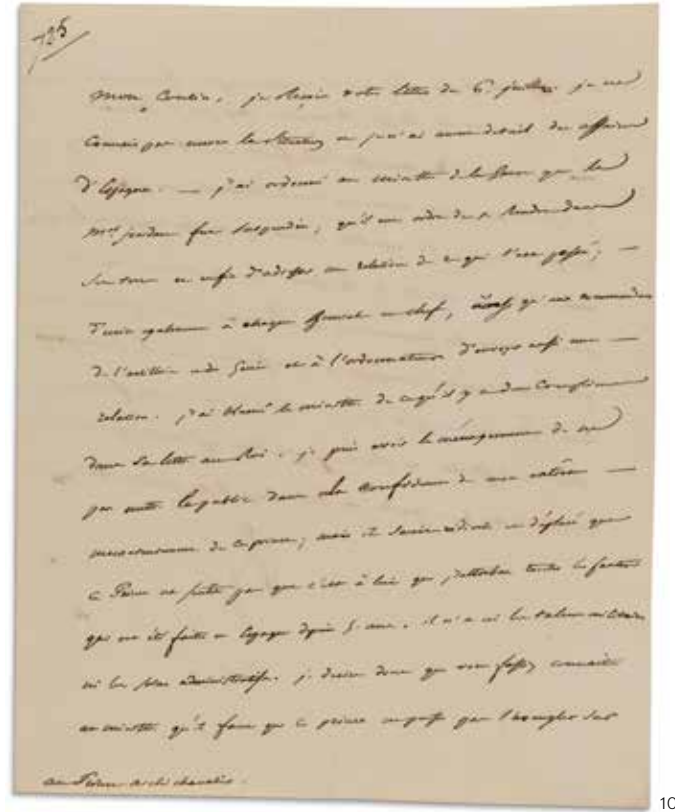 785
Mon Cousin, je reçois votre lettre du 6. juillet. je ne
connais pas encore la et je n'ai aucun détail des affaires
d'Espagne. — j'ai ordonné au ministre de la guerre que le
M.al Jourdan fut suspendu, qu'il eut ordre de se rendre dans
sa terre et enfin d'adresser une relation de ce qui s'est passé; —
d'écrire également à chaque général en chef, qui
de l'artillerie et du génie et à l'ordonnateur d'envoyer aussi une —
relation. j'ai blamé le ministre de ce qu'il y a du compliment
dans sa lettre au Roi. je puis avoir le ménagement de ne
pas mettre le public dans la confidence de mon extrême —
mécontentement de ce prince; mais il serait ridicule et déplacé que
ce Prince ne sentit pas que c'est à lui que j'attribue toutes les fautes
qui ont été faites en Espagne depuis 5. ans. il n'a ni les talens militaires
ni les administratifs. je desire donc que vous fassiez connaître
au ministre qu'il faut que ce prince ne puisse pas s'aveugler sur
au Prince archichancelier.
10